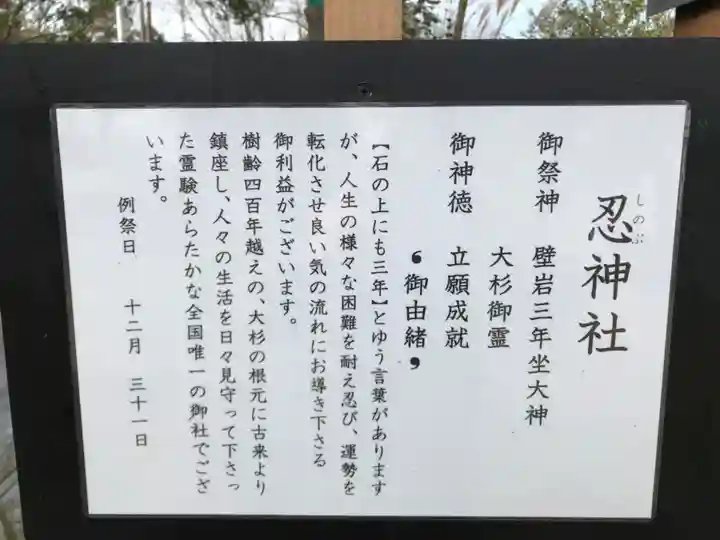 しのぶ
忍神社
御祭神 壁岩三年坐大神
大杉御霊
御神徳 立願成就
❛御由緒❜
【石の上にも三年】とゆう言葉があります
が、人生の様々な困難を耐え忍び、運勢を
転化させ良い気の流れにお導き下さる
御利益がございます。
樹齢四百年越えの、大杉の根元に古来より
鎮座し、人々の生活を日々見守って下さっ
た霊験あらたかな全国唯一の御社でござ
います。
例祭日 十二月 三十一日